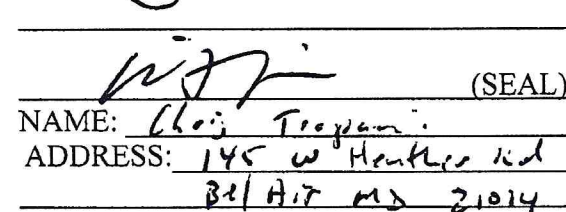 (SEAL)
NAME: Chris
ADDRESS: 145 W Heather Rd
Bel Air MD 21014